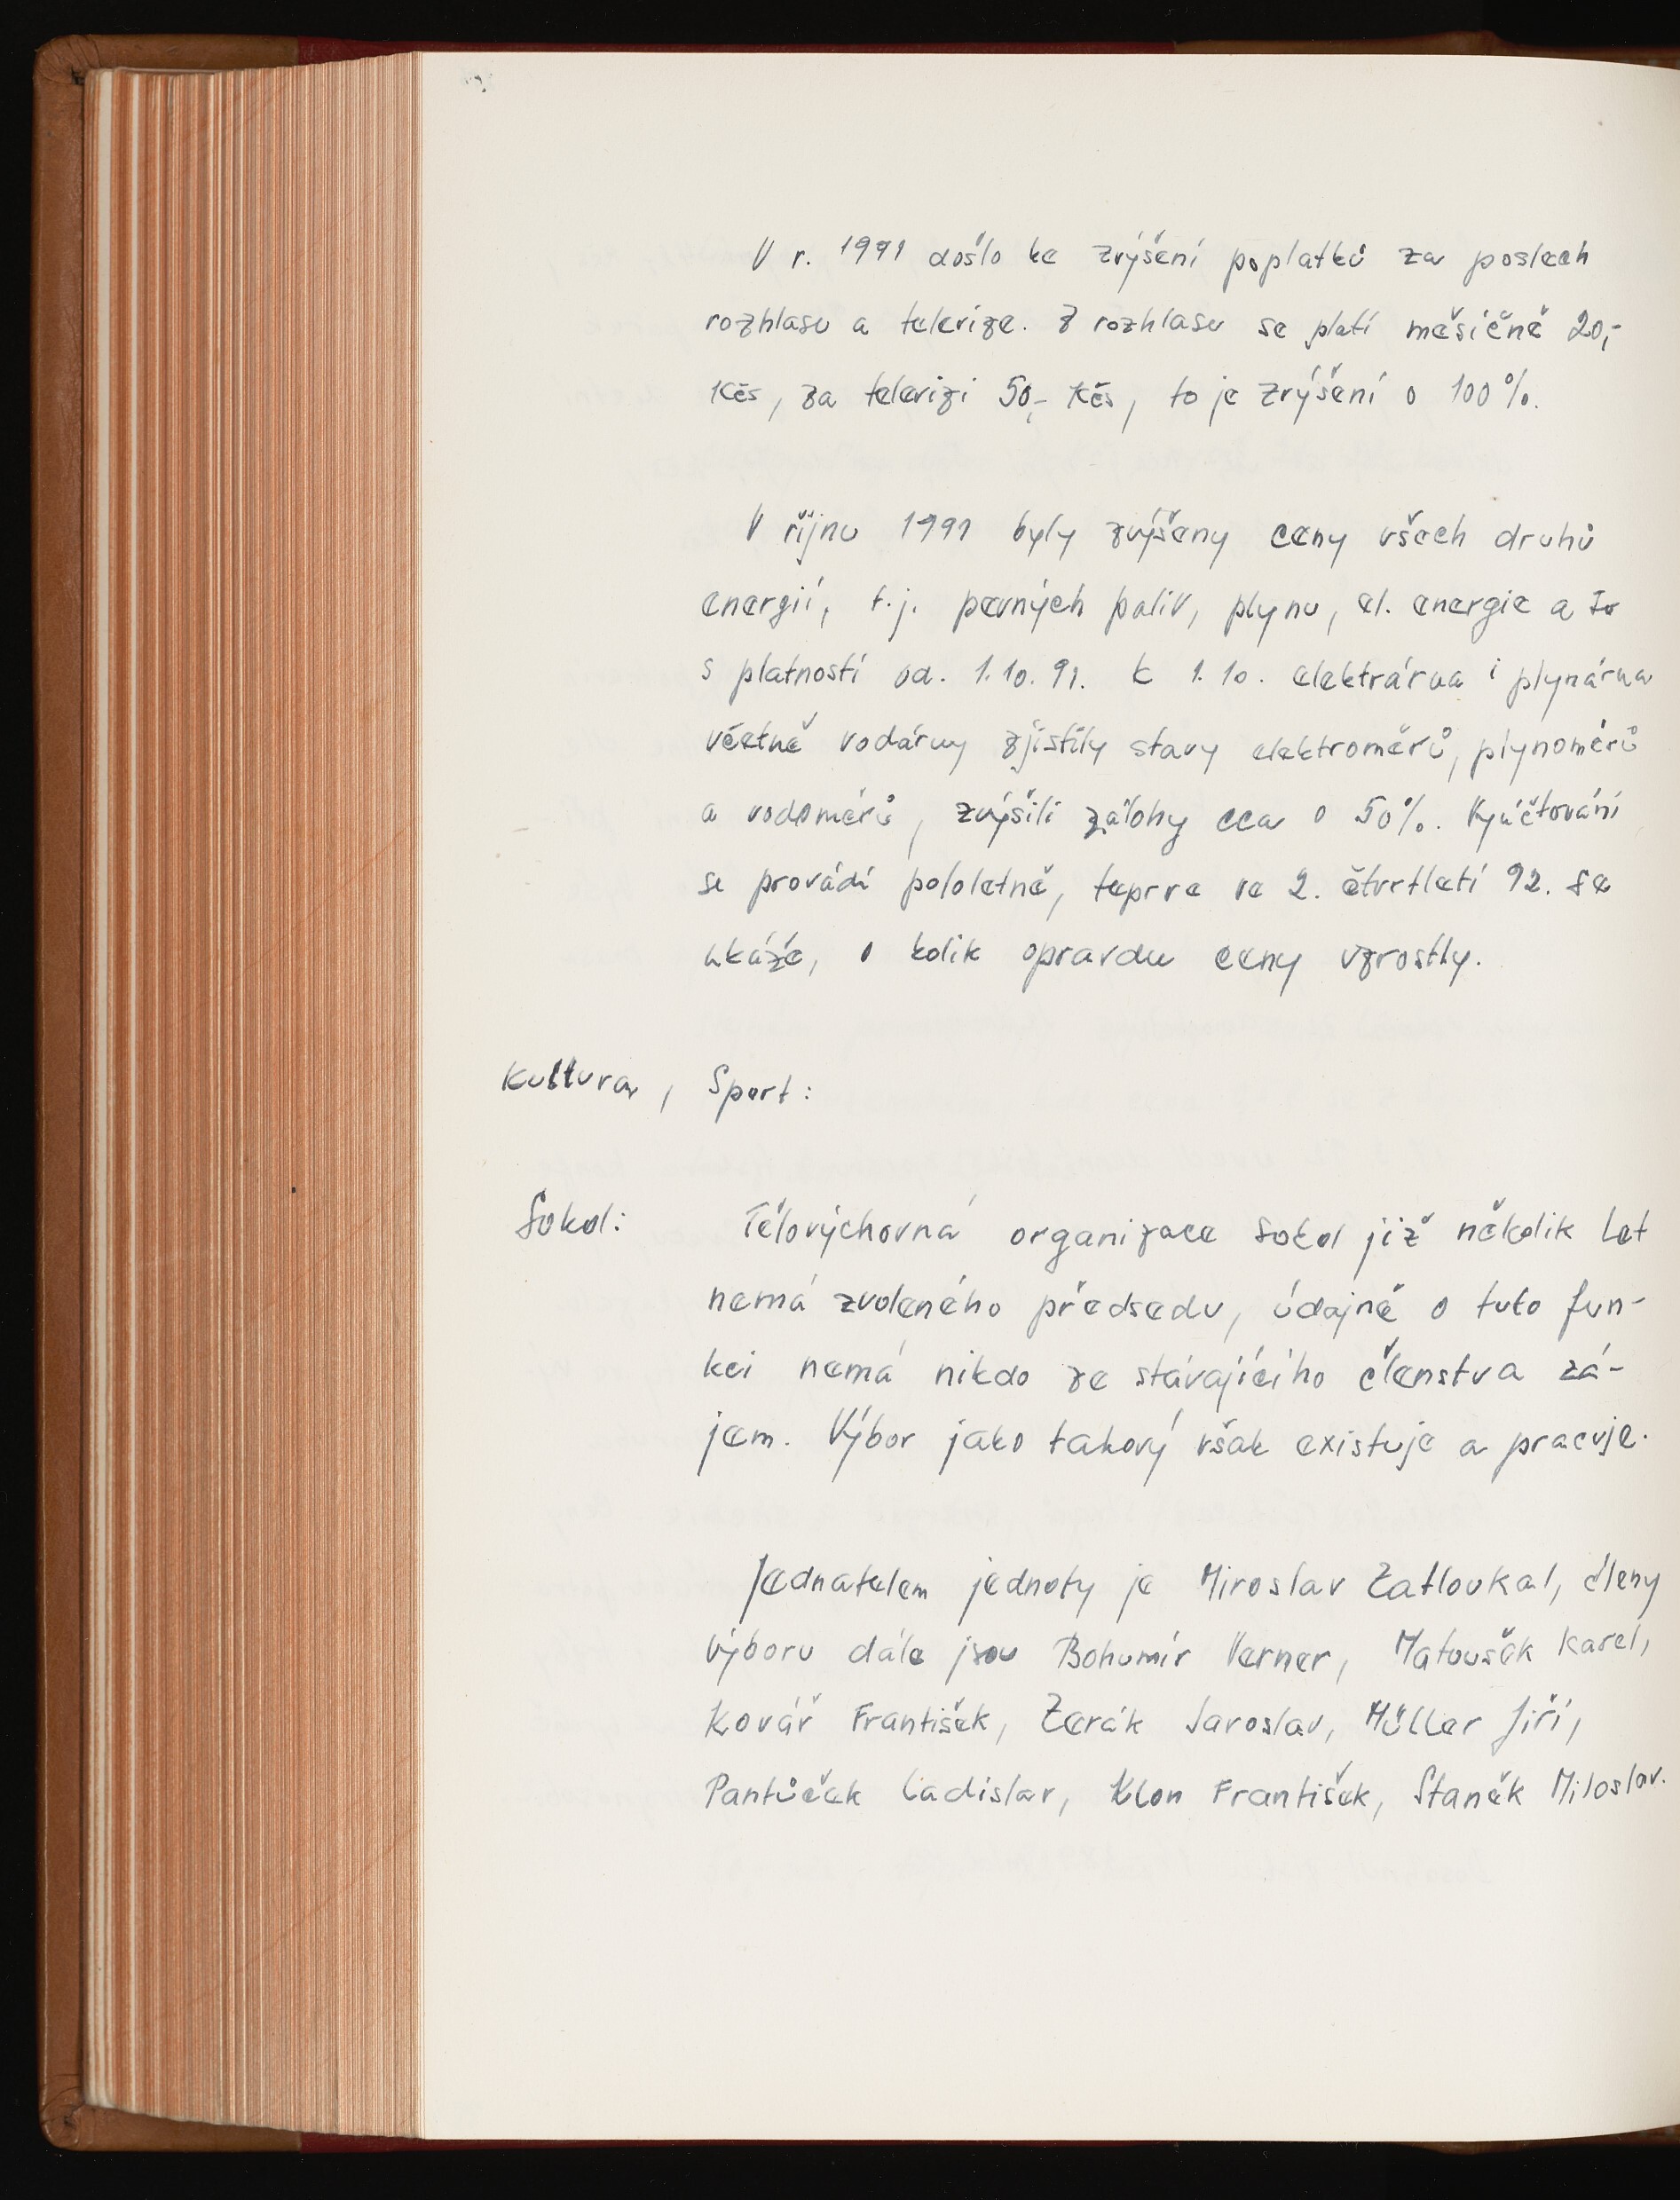 V r. 1991 došlo ke zvýšení poplatků za poslech
rozhlasu a televize. Z rozhlasu se platí měsíčně 20,-
Kčs, za televizi 50,- Kčs, to je zvýšení o 100%.
V říjnu 1991 byly zvýšeny ceny všech druhů
energií, t.j. pevných paliv, plynu, el. energie a to
s platností od. 1.10.91. K 1.10. elektrárna i plynárna
včetně vodárny zjistily stavy elektroměrů, plynoměrů
a vodoměrů, zvýšili zálohy cca o 50%. Vyúčtování
se provádí pololetně, teprve ve 2. čtvrtletí 92. se
ukáže, o kolik opravdu ceny vzrostly.
Kultura, Sport:
Sokol: Tělovýchovná organizace Sokol již několik let
nemá zvoleného předsedu, údajně o tuto fun-
kci nemá nikdo ze stávajícího členstva zá-
jem. Výbor jako takový však existuje a pracuje.
Jednatelem jednoty je Miroslav Zatloukal, členy
výboru dále jsou Bohumír Verner, Matoušek Karel,
Kovář František, Zerák Jaroslav, Müller Jiří,
Pantůček Ladislav, Klon František, Staněk Miloslav.